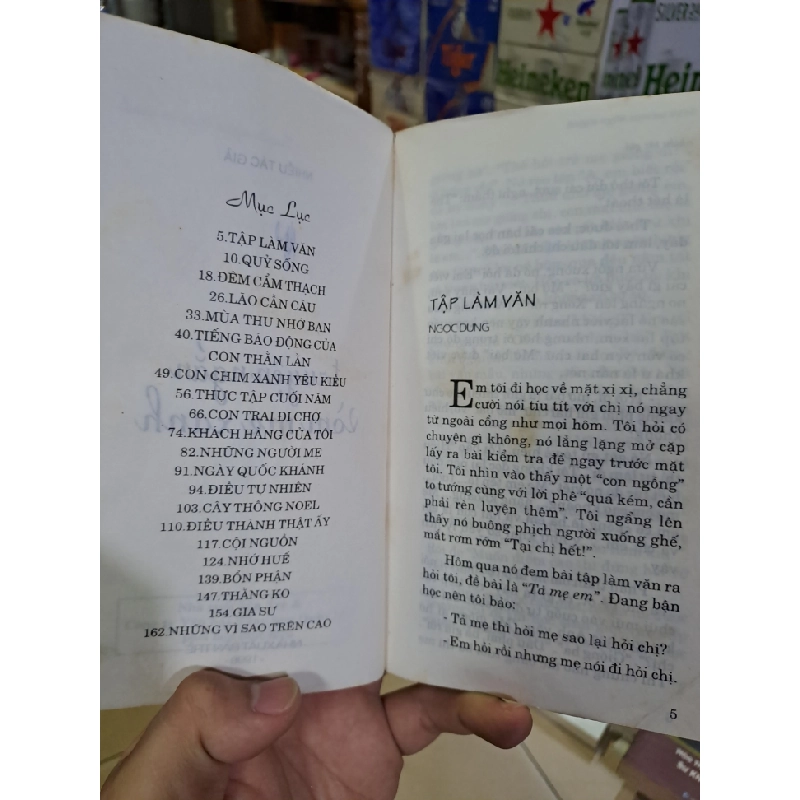 Mục Lục
5.TẬP LÀM VĂN
10.QUỶ SỐNG
18.ĐÊM CẨM THẠCH
26.LÃO CẦN CÂU
33.MÙA THU NHỚ BẠN
40.TIẾNG BÁO ĐỘNG CỦA
CON THẰN LẰN
49.CON CHIM XANH YÊU KIỀU
56.THỰC TẬP CUỐI NĂM
66.CON TRAI ĐI CHỢ
74.KHÁCH HÀNG CỦA TÔI
82.NHỮNG NGƯỜI MẸ
91.NGÀY QUỐC KHÁNH
94.ĐIỀU TỰ NHIÊN
103.CÂY THÔNG NOEL
110.ĐIỀU THÀNH THẬT ẤY
117.CỘI NGUỒN
124.NHỚ HUẾ
139.BỔN PHẬN
147.THẰNG KO
154.GIA SƯ
162.NHỮNG VÌ SAO TRÊN CAO
TẬP LÀM VĂN
NGỌC DUNG
Em tôi đi học về mặt xị xị, chẳng
cười nói tíu tít với chị nó ngay
từ ngoài cổng như mọi hôm. Tôi hỏi có
chuyện gì không, nó lẳng lặng mở cặp
lấy ra bài kiểm tra để ngay trước mặt
tôi. Tôi nhìn vào thấy một “con ngỗng”
to tướng cùng với lời phê “quá kém, cần
phải rèn luyện thêm”. Tôi ngẩng lên
thấy nó buông phịch người xuống ghế,
mắt rơm rớm “Tại chị hết!”.
Hôm qua nó đem bài tập làm văn ra
hỏi tôi, đề bài là “Tả mẹ em”. Đang bận
học nên tôi bảo:
- Tả mẹ thì hỏi mẹ sao lại hỏi chị?
- Em hỏi rồi nhưng mẹ nói đi hỏi chị.
5
Heineken
Heine
SILVER
Tiger